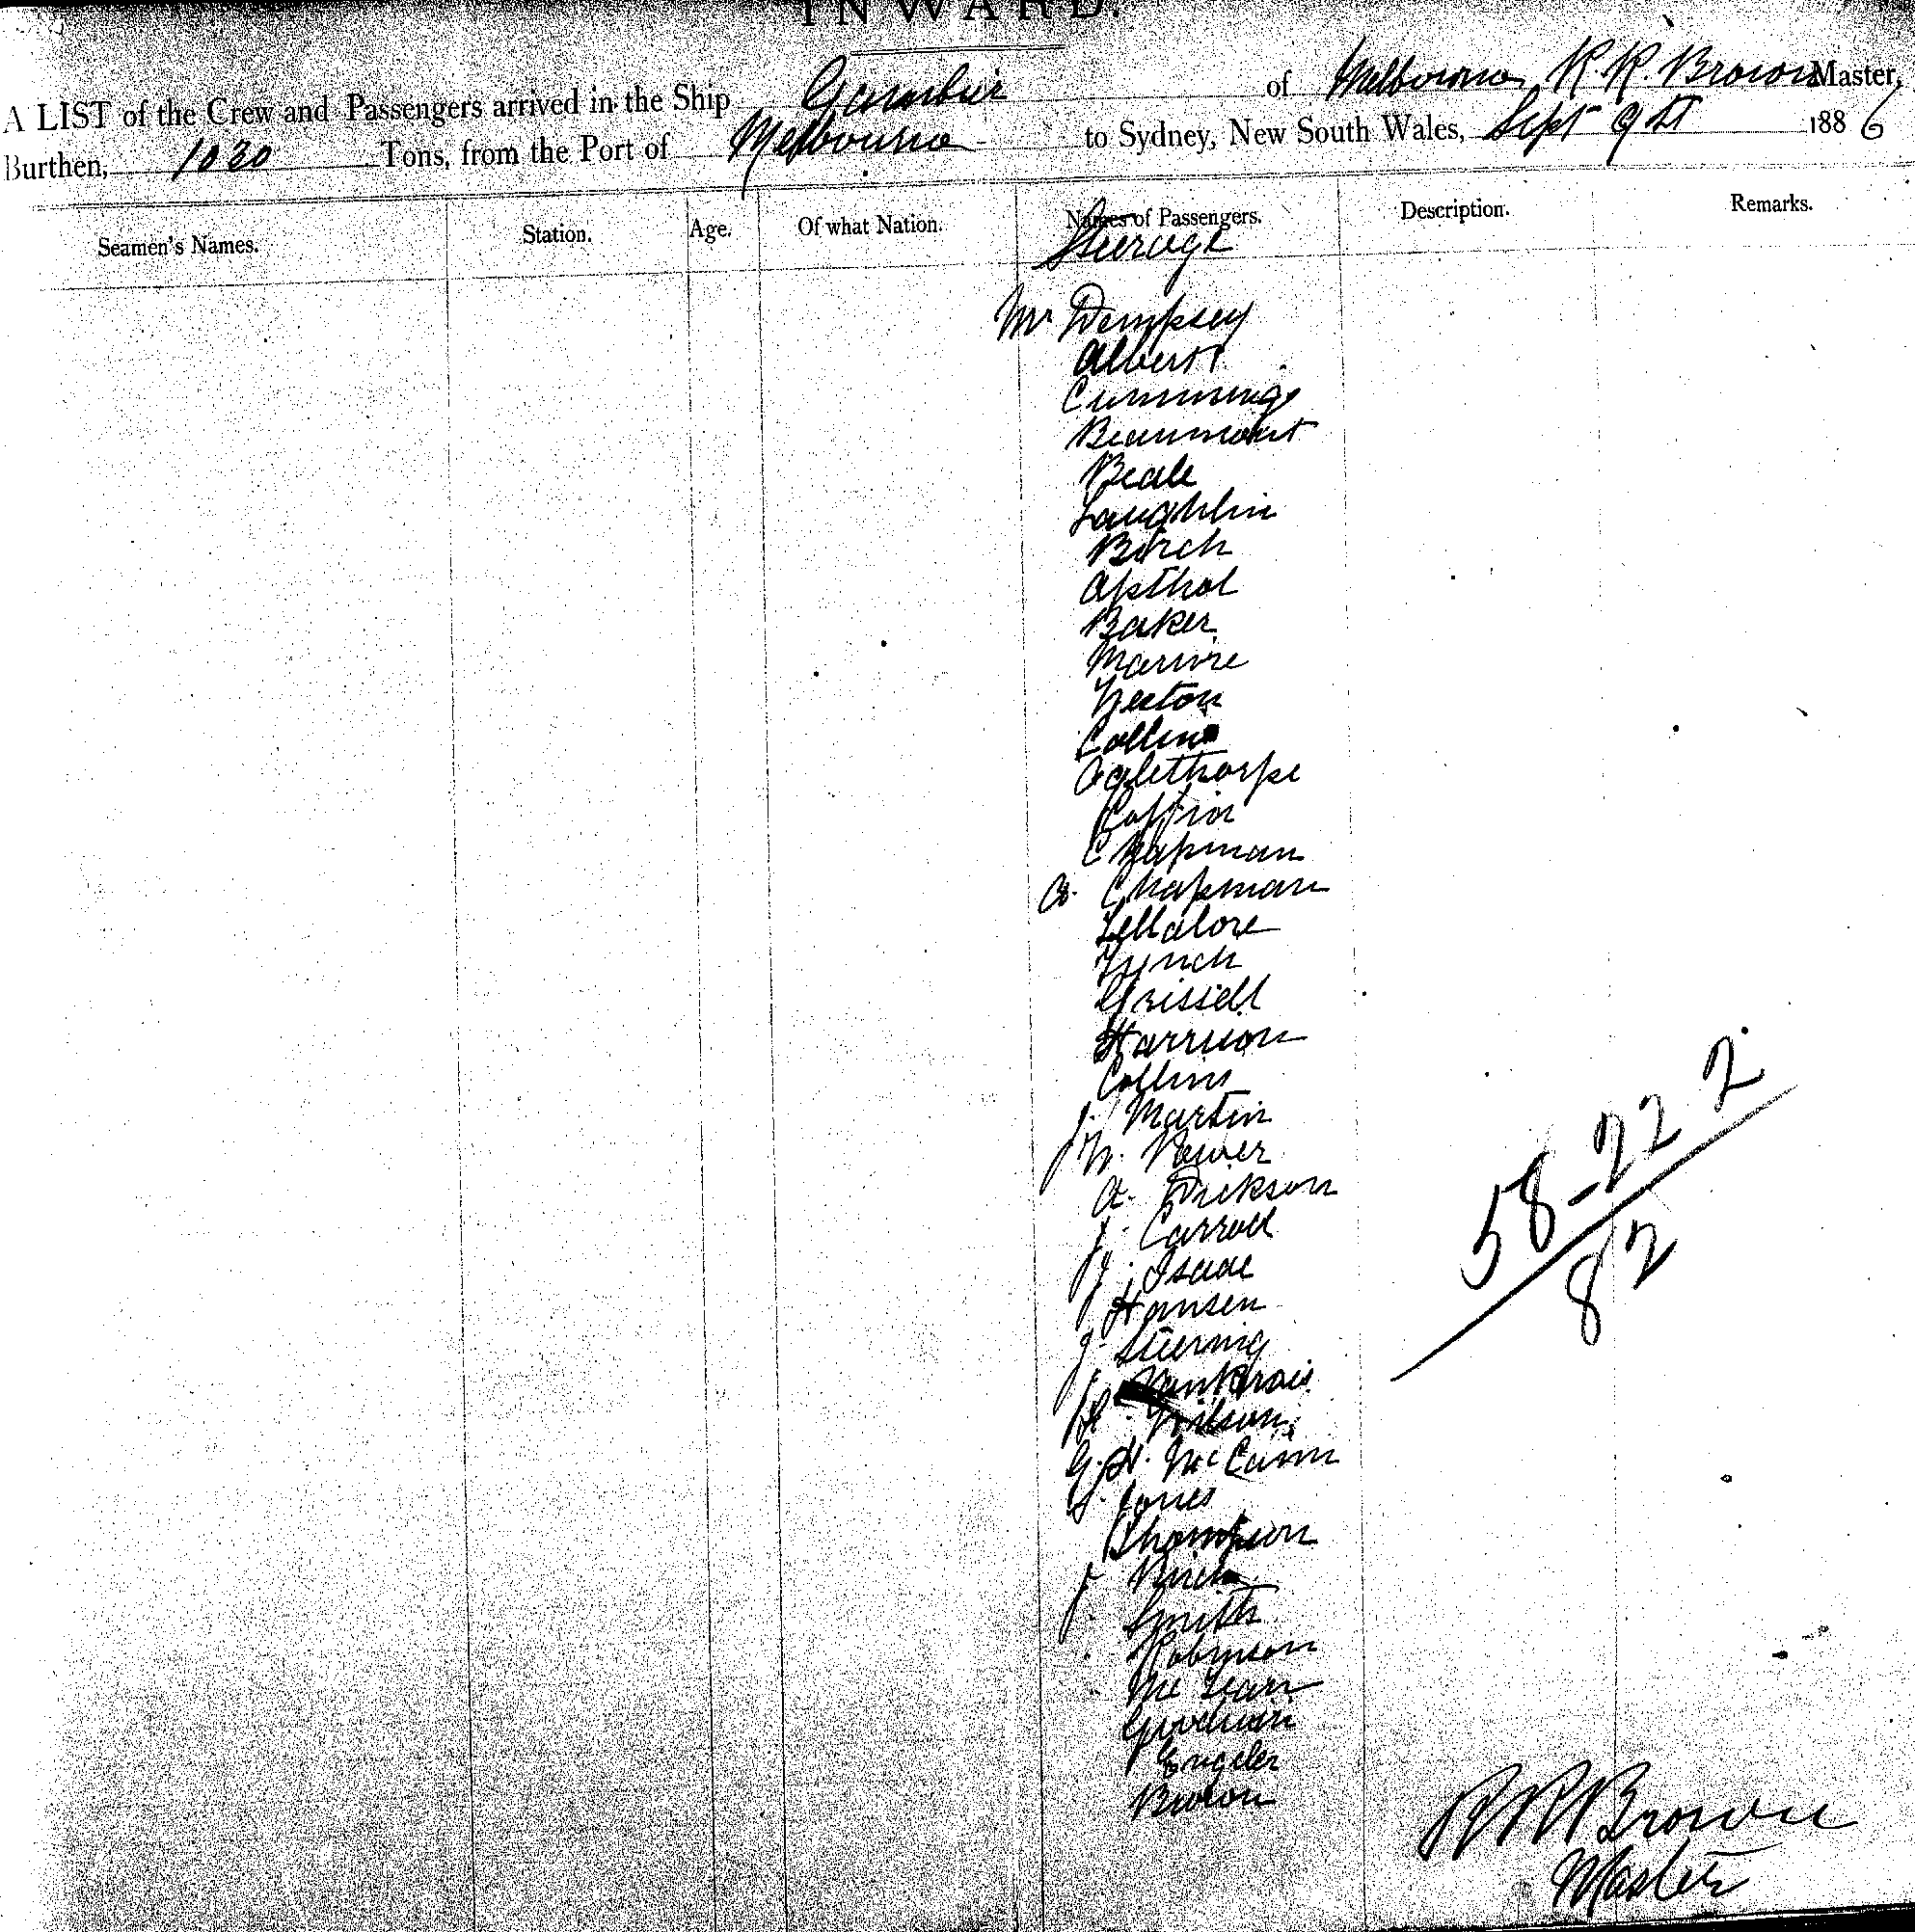 INWARD.
A LIST of the Crew and Passengers arrived in the Ship Gambier of Melbourne, R. R. Brown Master,
Burthen, 1030 Tons, from the Port of Melbourne to Sydney, New South Wales, Sept 9th 1886
Seamen's Names. Station. Age. Of what Nation. Names of Passengers. Description. Remarks.
Steerage
Mr Dempsey
Albert
Cummings
Beaumont
Beale
Laughlin
Birch
Apthol
Baker
Collins
Oglethorpe
Coffin
Chapman
Chapman
Lynch
Grissell
Harrison
Collins
J. Martin
A. Erikson
J. Carroll
J. Isaac
Hansen
Wilson
G. H. McCann
S. Jones
Thompson
J.
J. Smith
Robinson
Goodman
Engeler
Brown
58-22 2
82
R R Brown
Master